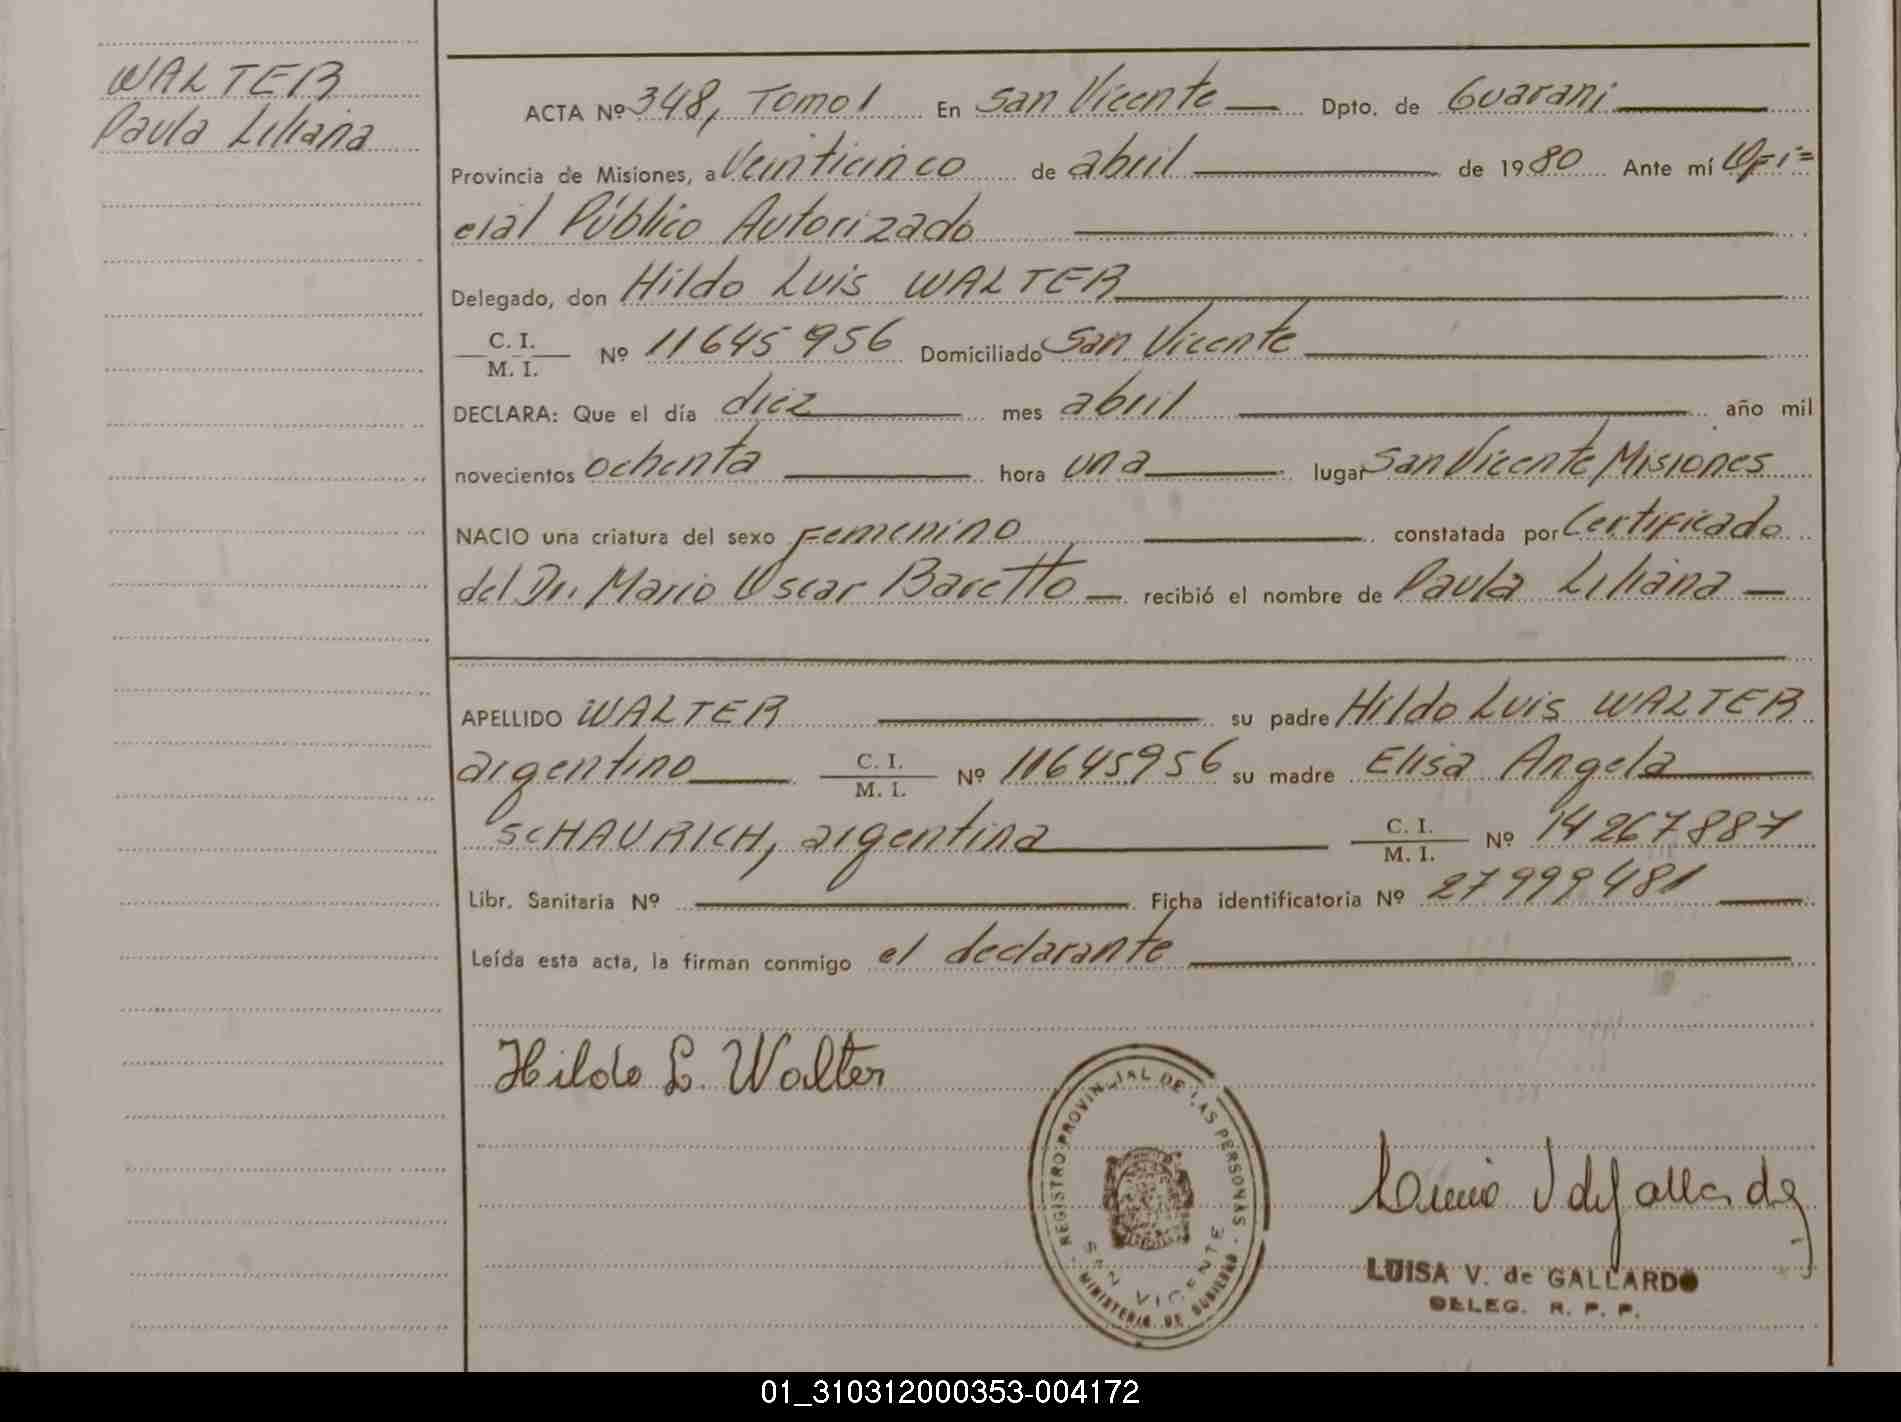 WALTER
Paula Liliana
ACTA Nº 348, Tomo I En San Vicente Dpto. de Guaraní
Provincia de Misiones, a Veinticinco de abril de 1980 Ante mí Ofi=
cial Público Autorizado
Delegado, don Hildo Luis WALTER
C. I.
M. I. Nº 11645956 Domiciliado San Vicente
DECLARA: Que el día diez mes abril año mil
novecientos ochenta hora una lugar San Vicente Misiones
NACIO una criatura del sexo Femenino constatada por Certificado
del Dr. Mario Oscar Baretto recibió el nombre de Paula Liliana
APELLIDO WALTER su padre Hildo Luis WALTER
argentino C. I. M. I. Nº 11645956 su madre Elisa Angela
SCHAURICH, argentina C. I. M. I. Nº 14267887
Libr. Sanitaria Nº Ficha identificatoria Nº 27999481
Leída esta acta, la firman conmigo el declarante
Hildo L. Walter
REGISTRO PROVINCIAL DE LAS PERSONAS
SAN VICENTE
MINISTERIO DE
LUISA V. de GALLARDO
DELEG. R. P. P.
01_310312000353-004172